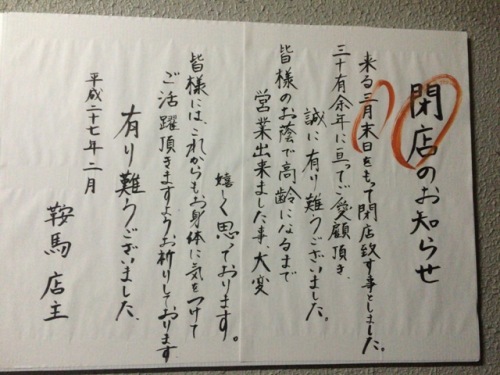 閉店のお知らせ
来る三月末日をもって閉店致す事としました。
三十有余年に亘ってご愛顧頂き、
誠に有り難うございます。
皆様のお蔭で高齢になるまで
営業出来ました事、大変
嬉しく思っております。
皆様には、これからもお身体に気をつけて
ご活躍頂きますようお祈りしております
有り難うございました、
平成二十七年二月
鞍馬 店主